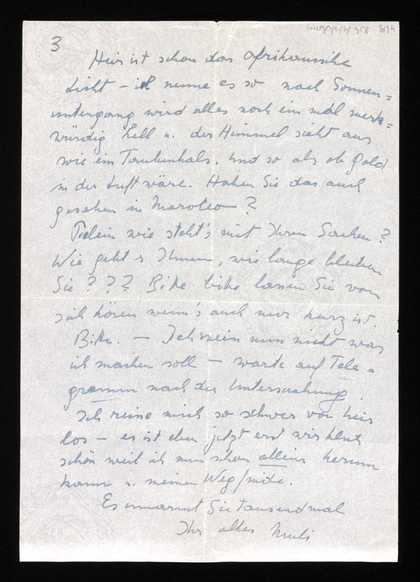 3
Hier ist schon das afrikanische
Licht – ich nenne es so nach Sonnen=
untergang wird alles noch ein mal merk=
würdig hell u. der Himmel sieht aus
wie ein Taubenhals. Und so als ob Gold
in der Luft wäre. Haben Sie das auch
gesehen in Marocco?
wie steht's mit Ihren Sachen?
Wie geht's Ihnen, wie lange bleiben
Sie??? Bitte bitte lassen Sie von
sich hören wenn's auch nur kurz ist.
Bitte. – Ich weiss nun nicht was
ich machen soll – warte auf Tele=
gramm nach der Untersuchung.
Ich reisse mich so schwer von hier
los – es ist eben jetzt erst wirklich
schön weil ich nun schon allein herum
kann u. meinen Weg finde.
Es umarmt Sie tausendmal
Ihr altes